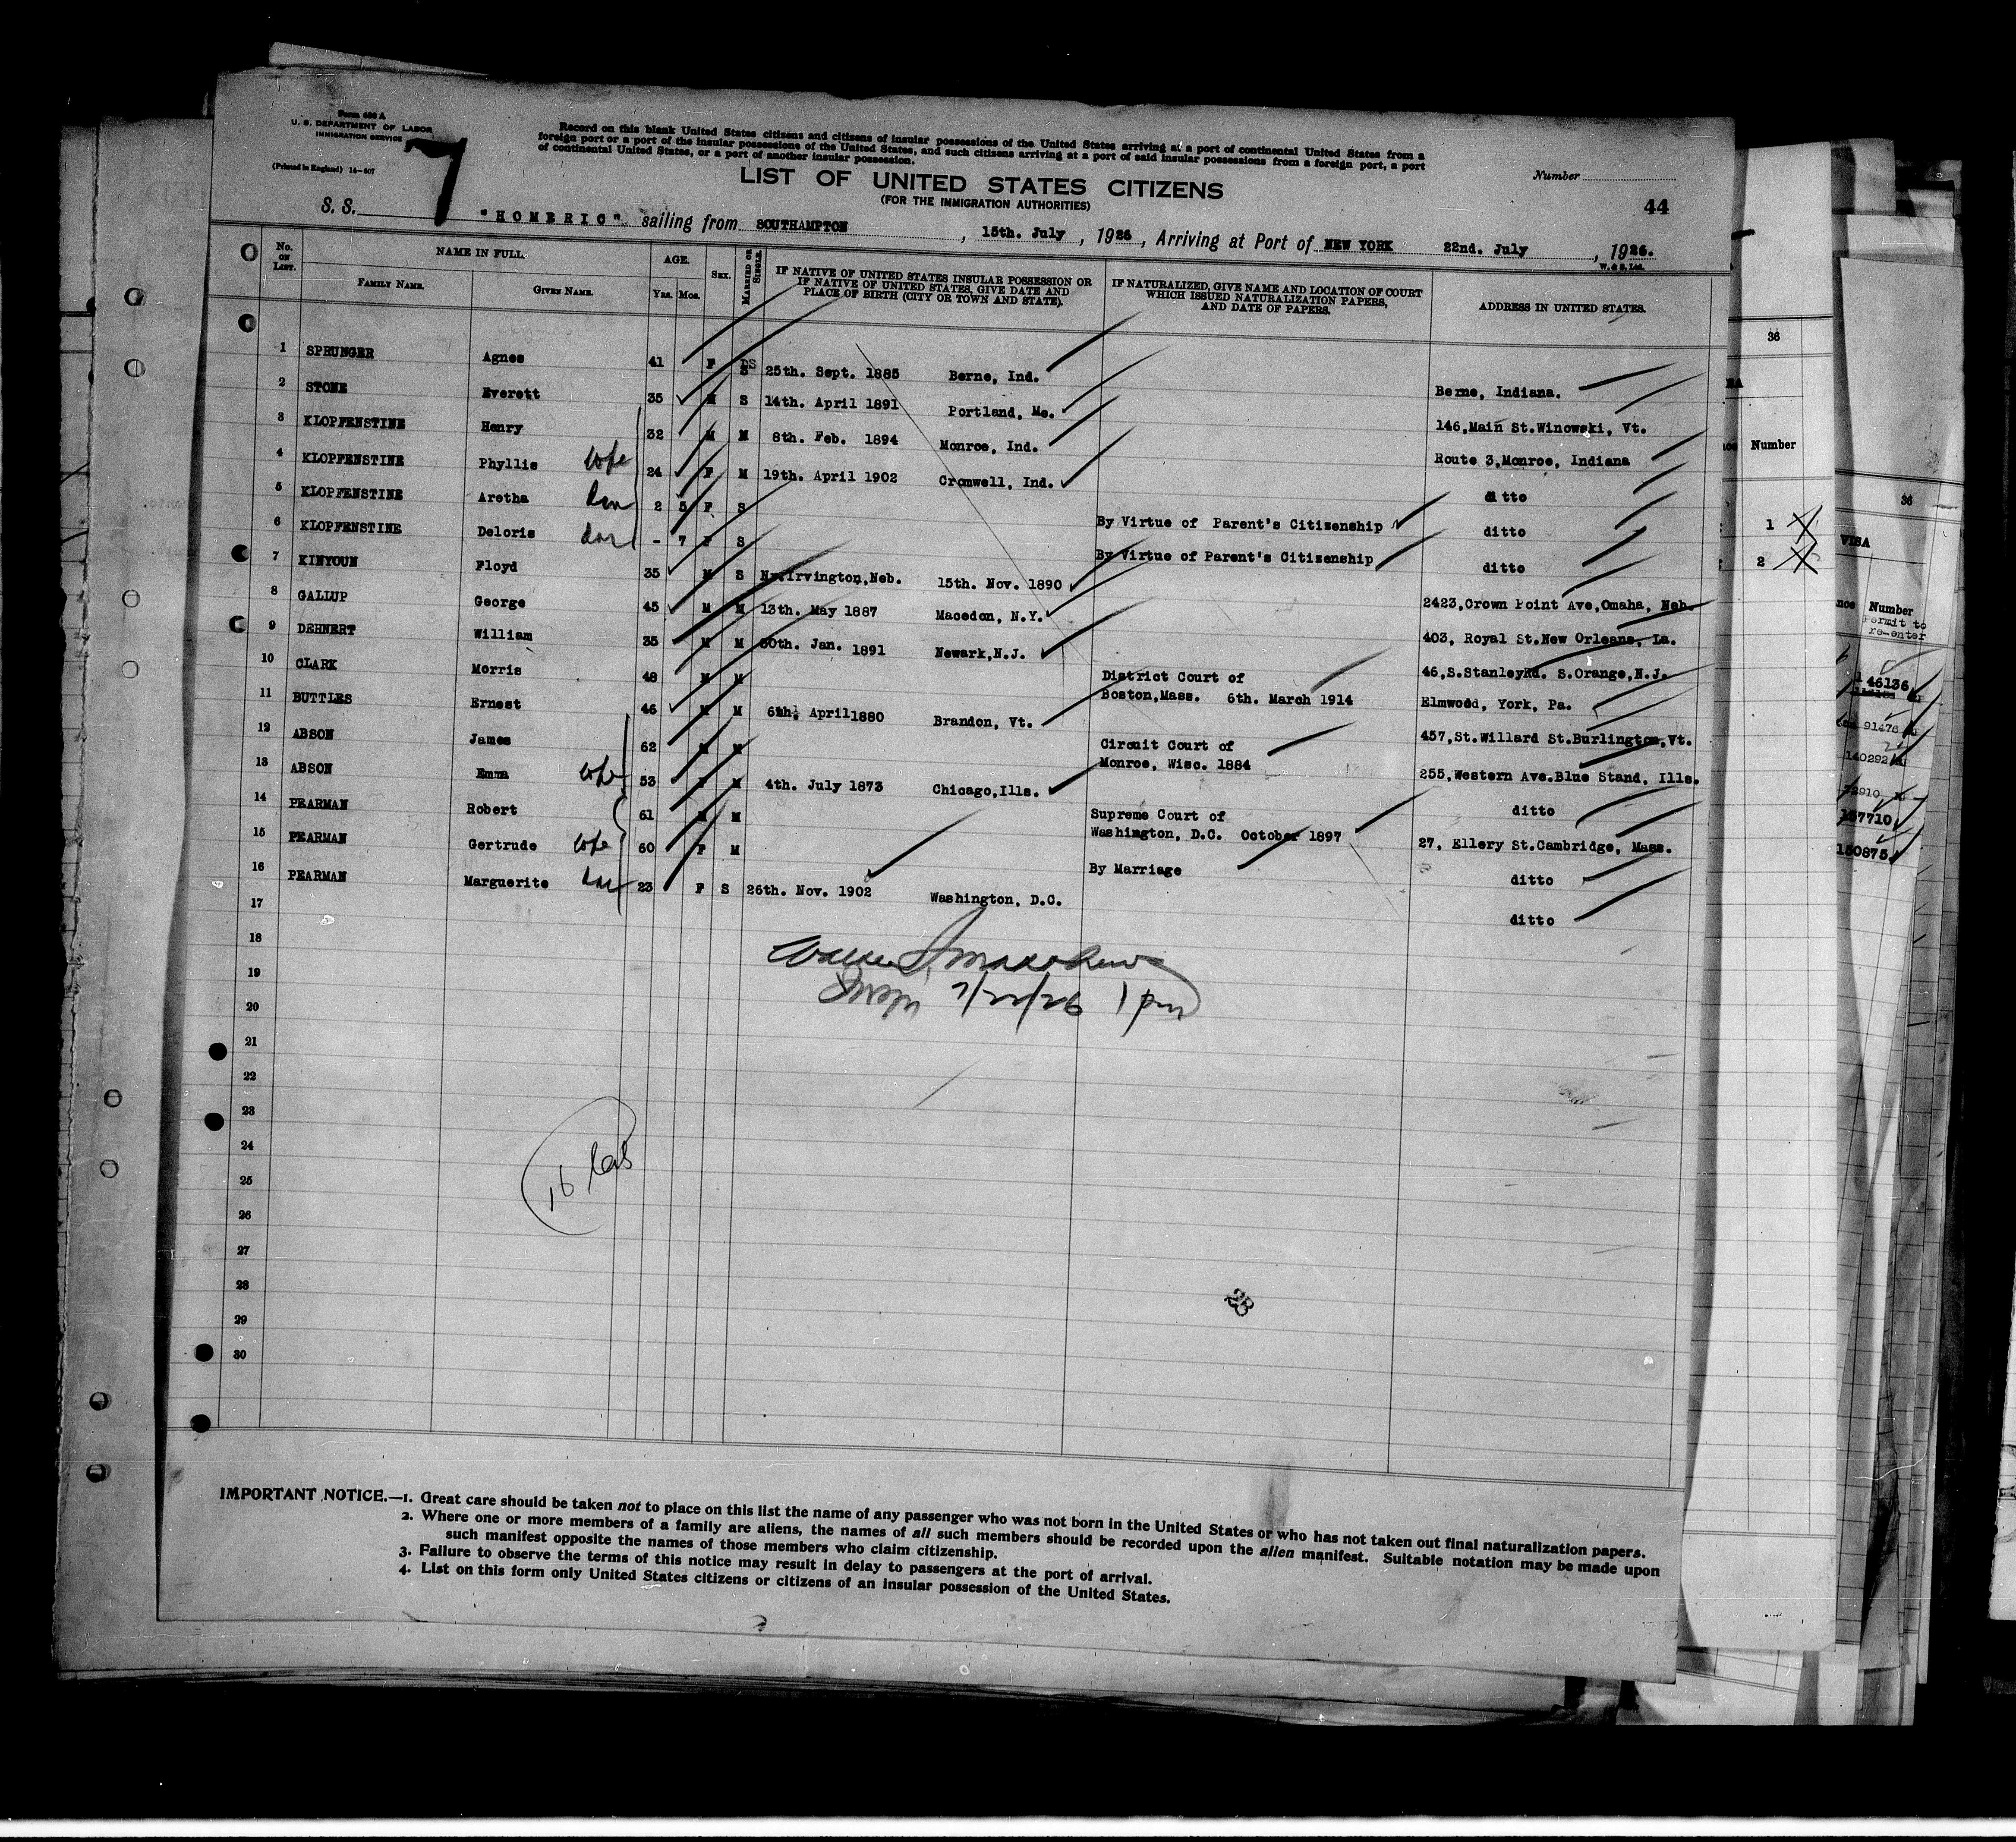 Form 630 A
U. S. DEPARTMENT OF LABOR
IMMIGRATION SERVICE
(Printed in England) 14-607
7
Record on this blank United States citizens and citizens of insular possessions of the United States arriving at a port of continental United States from a
foreign port or a port of the insular possessions of the United States, and such citizens arriving at a port of said insular possessions from a foreign port, a port
of continental United States, or a port of another insular possession.
LIST OF UNITED STATES CITIZENS
(FOR THE IMMIGRATION AUTHORITIES)
Number
44
S. S. "HOMERIC" sailing from SOUTHAMPTON, 15th. July, 1926, Arriving at Port of NEW YORK 22nd. July, 1926.
W. & S. Ltd.
No. ON LIST. NAME IN FULL. FAMILY NAME. GIVEN NAME. AGE. Yrs. Mos. SEX. MARRIED OR SINGLE. IF NATIVE OF UNITED STATES INSULAR POSSESSION OR IF NATIVE OF UNITED STATES, GIVE DATE AND PLACE OF BIRTH (CITY OR TOWN AND STATE). IF NATURALIZED, GIVE NAME AND LOCATION OF COURT WHICH ISSUED NATURALIZATION PAPERS, AND DATE OF PAPERS. ADDRESS IN UNITED STATES.
1 SPRUNGER Agnes 41 F S 25th. Sept. 1885 Berne, Ind. Berne, Indiana.
2 STONE Everett 35 M S 14th. April 1891 Portland, Me. 146,Main St.Winowski, Vt.
3 KLOPFENSTINE Henry 32 M M 8th. Feb. 1894 Monroe, Ind. Route 3,Monroe, Indiana
4 KLOPFENSTINE Phyllis wife 24 F M 19th. April 1902 Cromwell, Ind. ditto
5 KLOPFENSTINE Aretha dau 2 5 F S By Virtue of Parent's Citizenship ditto
6 KLOPFENSTINE Deloris dau - 7 F S By Virtue of Parent's Citizenship ditto
7 KINYOUN Floyd 35 M S Nr.Irvington,Neb. 15th. Nov. 1890 2423,Crown Point Ave,Omaha, Neb.
8 GALLUP George 45 M M 13th. May 1887 Macedon, N.Y. 403, Royal St.New Orleans, La.
9 DEHNERT William 35 M M 30th. Jan. 1891 Newark,N.J. 46,S.StanleyRd. S.Orange,N.J.
10 CLARK Morris 48 M M District Court of Boston,Mass. 6th. March 1914 Elmwood, York, Pa.
11 BUTTLES Ernest 46 M M 6th. April1880 Brandon, Vt. 457,St.Willard St.Burlington,Vt.
12 ABSON James 62 M M Circuit Court of Monroe, Wisc. 1884 255,Western Ave.Blue Stand, Ills.
13 ABSON Emma wife 53 F M 4th. July 1873 Chicago,Ills. ditto
14 PEARMAN Robert 61 M M Supreme Court of Washington, D.C. October 1897 27, Ellery St.Cambridge, Mass.
15 PEARMAN Gertrude wife 60 F M By Marriage ditto
16 PEARMAN Marguerite dau 23 F S 26th. Nov. 1902 Washington, D.C. ditto
17
18
19
7/22/26 1 pm
20
21
22
23
24
25
26
27
28
29
30
16
23
IMPORTANT NOTICE.—1. Great care should be taken not to place on this list the name of any passenger who was not born in the United States or who has not taken out final naturalization papers.
2. Where one or more members of a family are aliens, the names of all such members should be recorded upon the alien manifest. Suitable notation may be made upon
such manifest opposite the names of those members who claim citizenship.
3. Failure to observe the terms of this notice may result in delay to passengers at the port of arrival.
4. List on this form only United States citizens or citizens of an insular possession of the United States.
36
Number
1
2
36
VISA
Number
Permit to
re-enter
46136
91476
140292
137710
150875